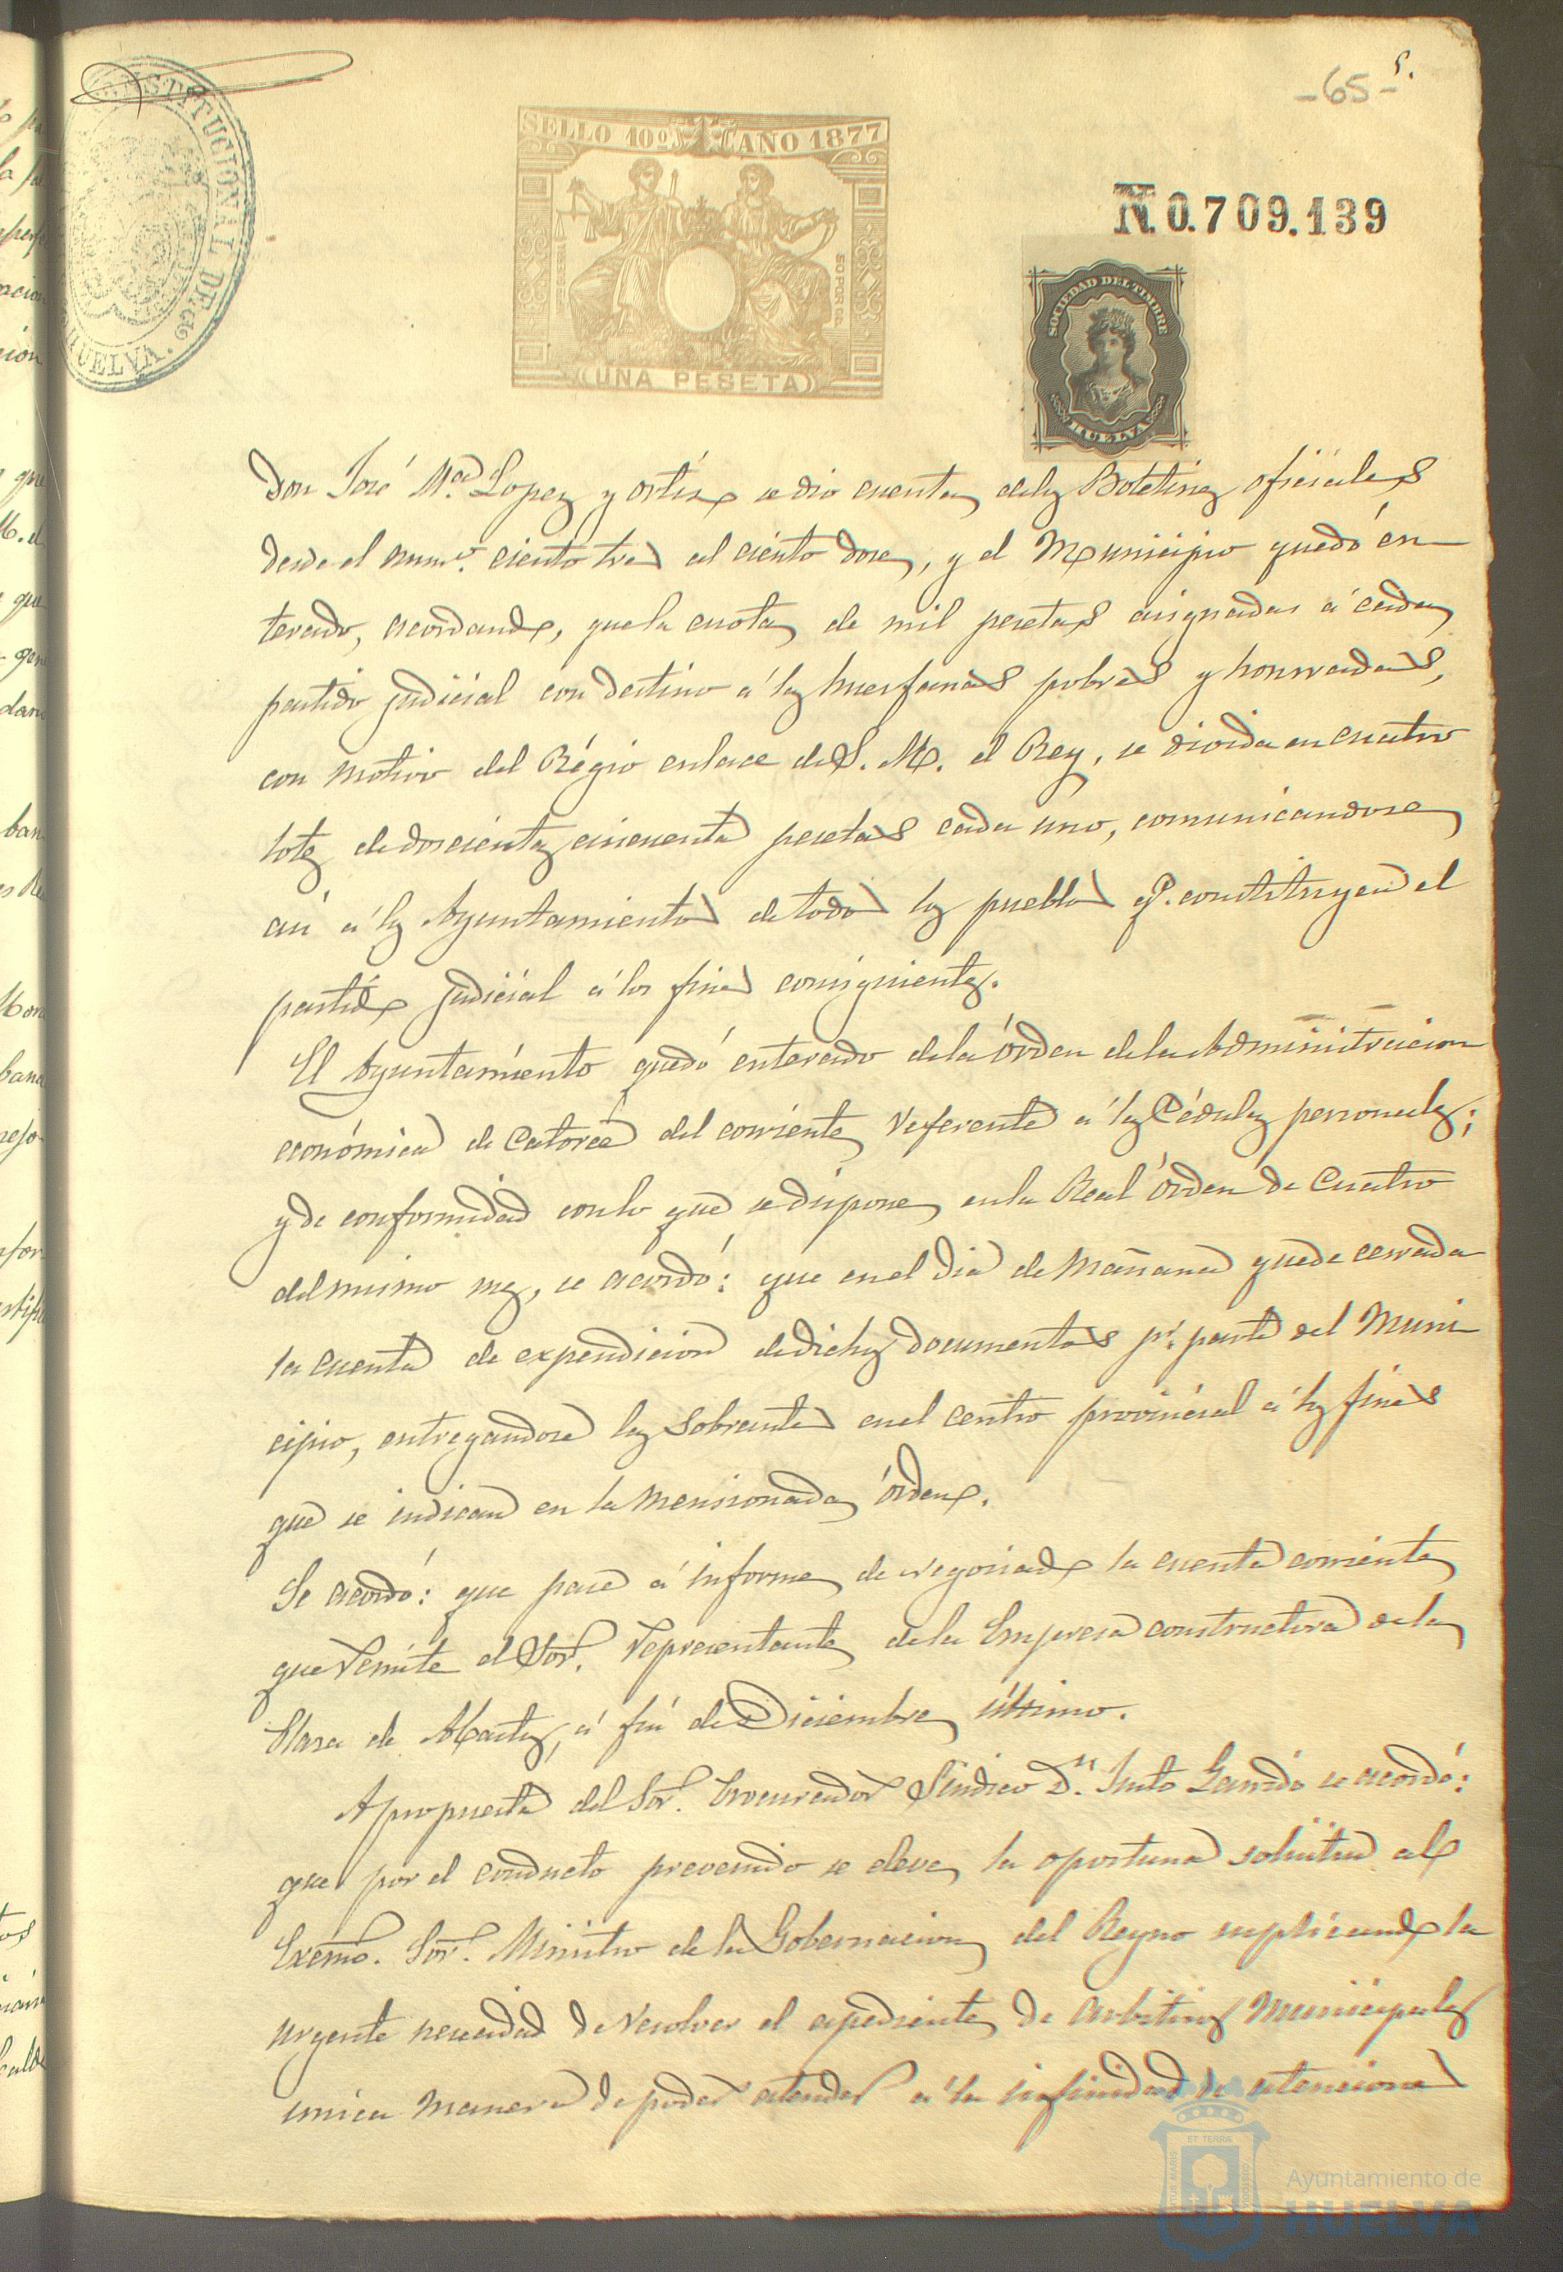 -65-
SELLO 10º AÑO 1877
50 POR 100
50 POR 100
(UNA PESETA)
CONSTITUCIONAL DE
HUELVA.
N. 0.709.139
SOCIEDAD DEL TIMBRE
HUELVA
Don José Mª. Lopez y ortiz se dio cuenta de los Boletines oficiales
desde el numº. ciento tres al ciento doce, y el Municipio quedó en-
terado, acordando, que la cuota de mil pesetas asignadas á cada
partido judicial con destino á las huerfanas pobres y honrradas,
con motivo del Régio enlace de S. M. el Rey, se divida en cuatro
lotes de doscientas cincuenta pesetas cada uno, comunicandose
asi á los Ayuntamientos de todos los pueblos q. constituyen el
partido judicial á los fines consiguientes.
El Ayuntamiento quedó enterado de la órden de la Administracion
económica de Catorce del corriente referente á las Cédulas personales;
y de conformidad con lo que se dispone en la Real órden de Cuatro
del mismo mes, se acordó: que en el dia de Mañana quede cerrada
la cuenta de expendicion de dichos documentos pr. parte del Muni-
cipio, entregandose los sobrantes en el centro provincial á los fines
que se indican en la mensionada órden.
Se acordó: que pase á informe de negociado la cuenta corriente
que remite el Sor. representante de la Empresa constructora de la
Plaza de Abastos, á fin de Diciembre último.
A propuesta del Sor. Procurador Sindico Dn. Justo Garrido se acordó:
que por el conducto prevenido se eleve la oportuna solicitud al
Exćmo. Sor. Ministro de la Gobernacion del Reyno suplicando la
urgente necesidad de resolver el expediente de arbitrios Municipales
unica manera de poder atender á la infinidad de atenciones
Ayuntamiento de
HUELVA